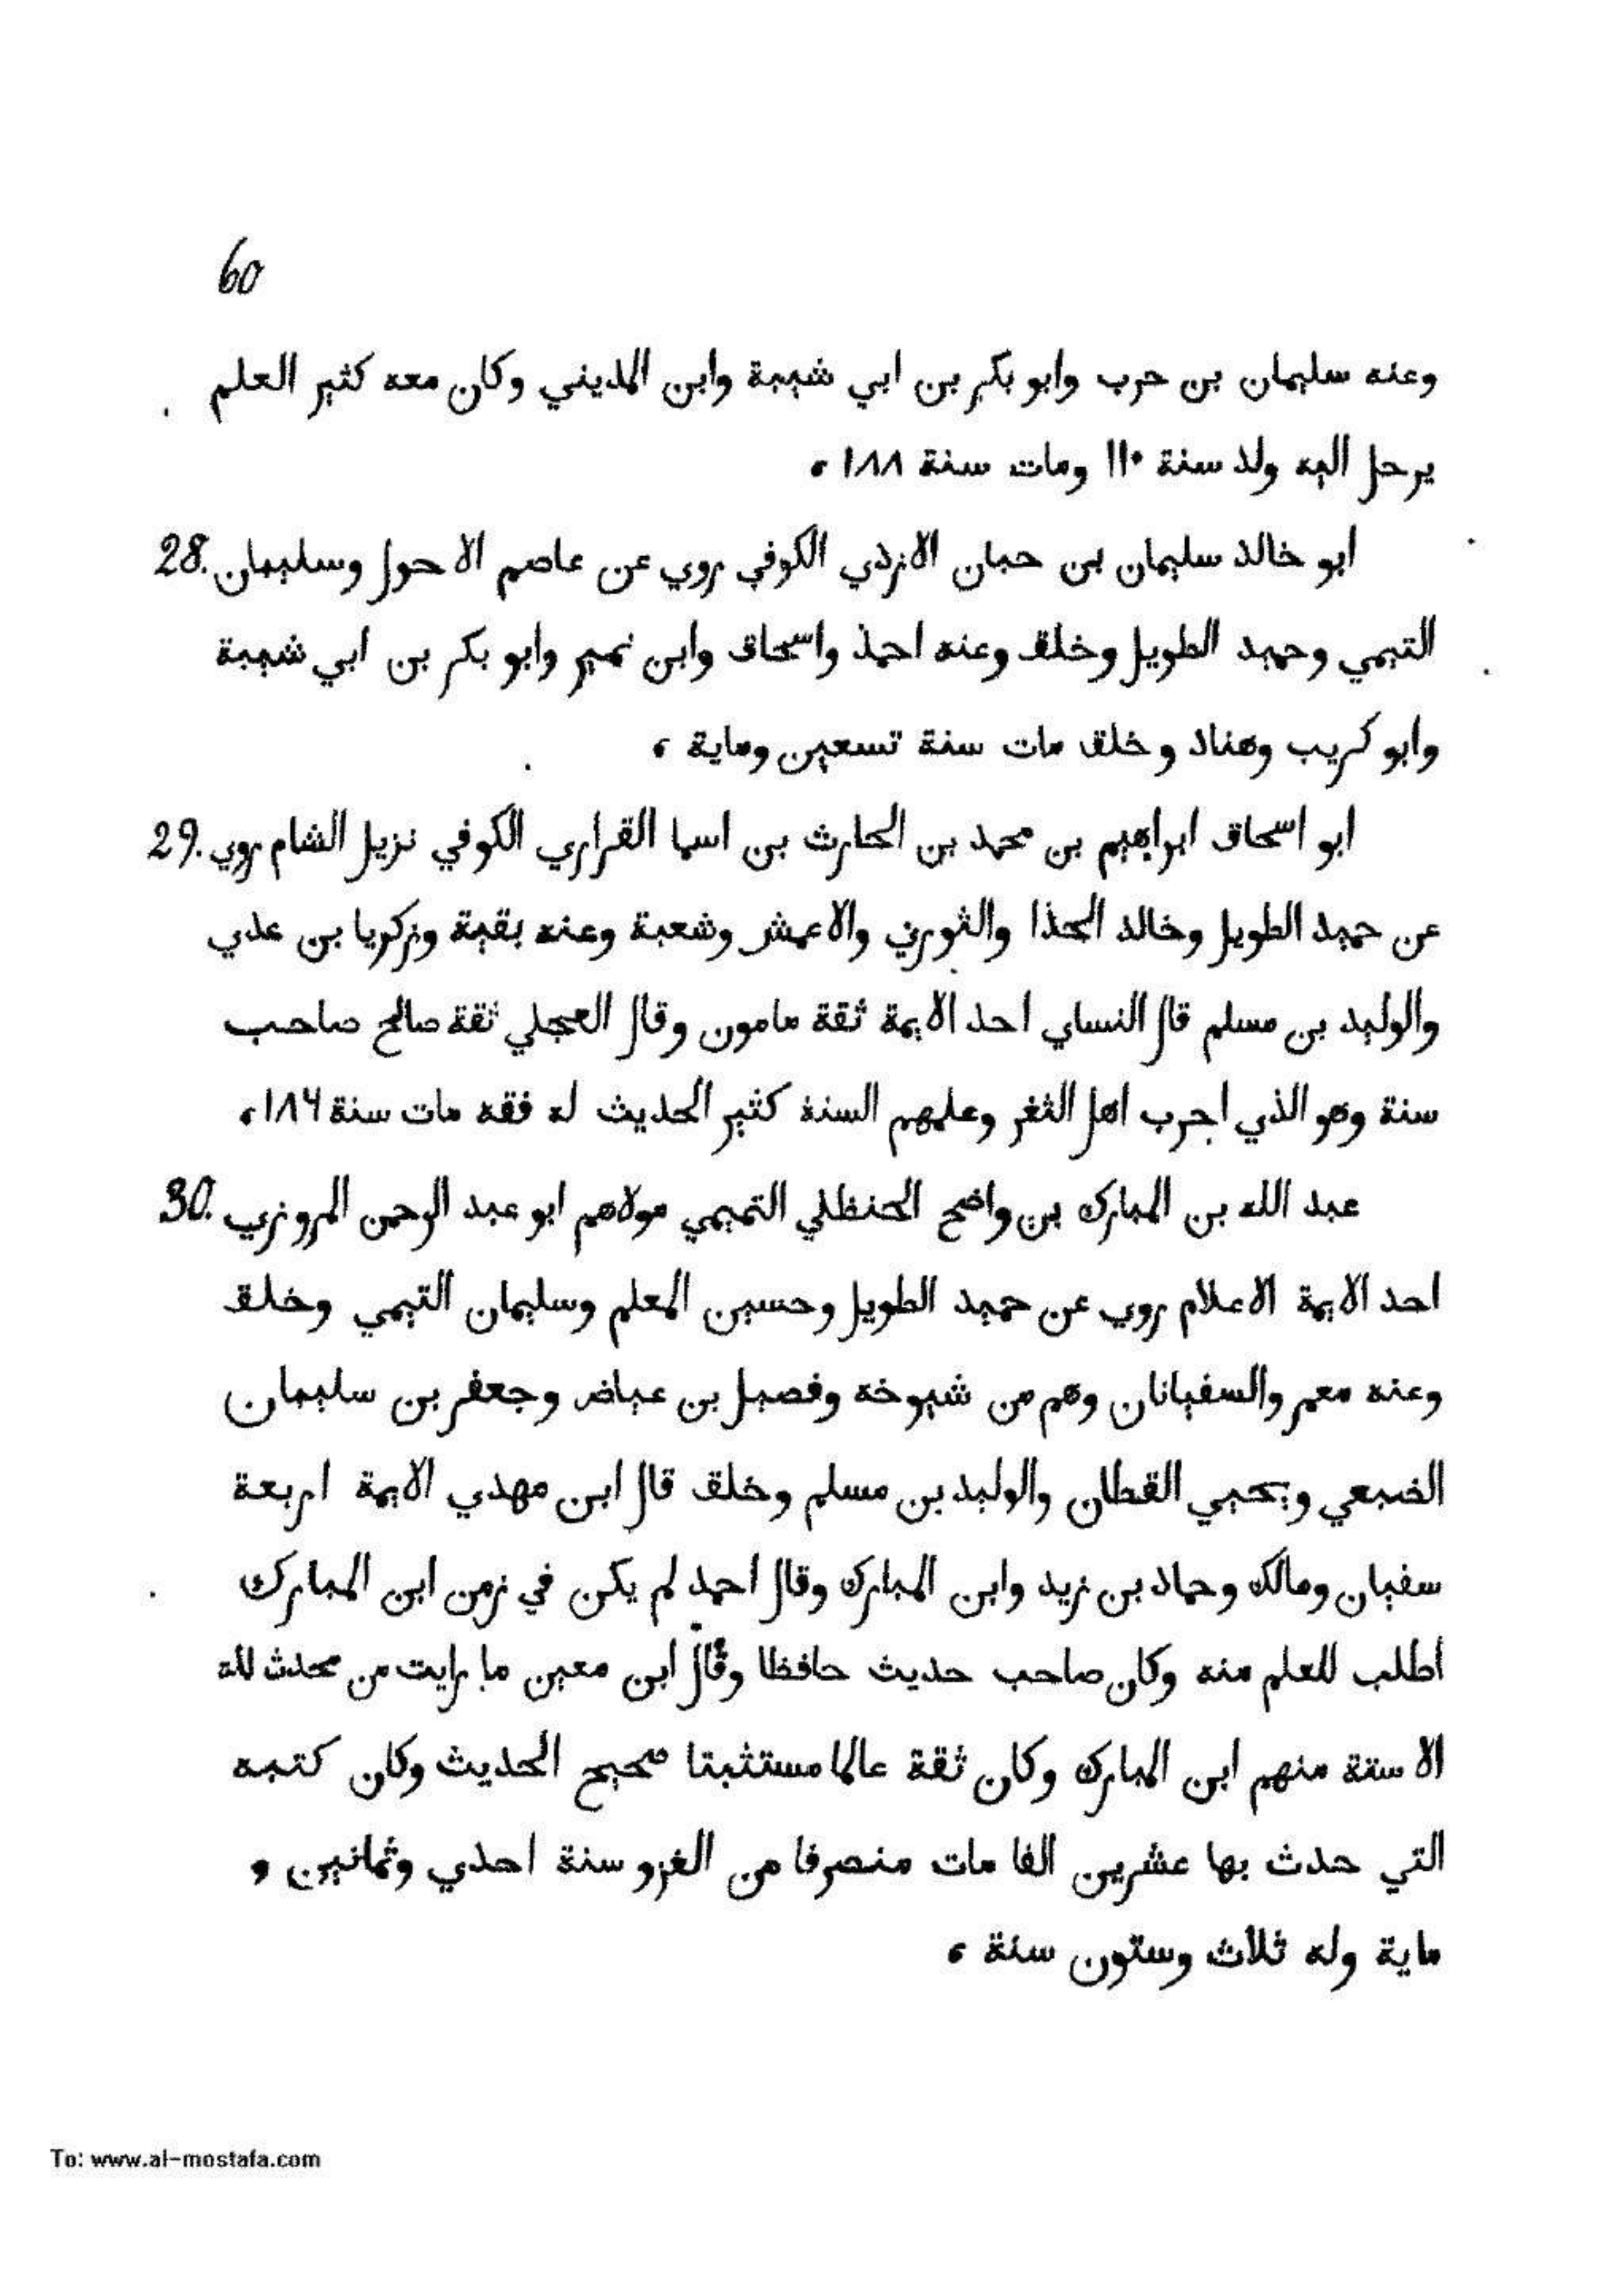 60
وعنه سليمان بن حرب وابو بكر بن ابي شيبة وابن المديني وكان معه كثير العلم
يرحل اليه ولد سنة ١١٠ ومات سنة ١٨٨ ،
28. ابو خالد سليمان بن حبان الازدي الكوفي روي عن عاصم الاحول وسليمان
التيمي وحميد الطويل وخلق وعنه احمد واسحاق وابن نمير وابو بكر بن ابي شيبة
وابو كريب وهناد وخلق مات سنة تسعين وماية ،
29. ابو اسحاق ابراهيم بن محمد بن الحارث بن اسما القراري الكوفي نزيل الشام روي
عن حميد الطويل وخالد الحذا والثوري والاعمش وشعبة وعنه بقية وزكريا بن عدي
والوليد بن مسلم قال النساي احد الايمة ثقة مامون وقال العجلي ثقة صالح صاحب
سنة وهو الذي اجرب اهل الثغر وعلمهم السنة كثير الحديث له فقه مات سنة ١٨٤ ،
30. عبد الله بن المبارك بن واضح الحنظلي التميمي مولاهم ابو عبد الرحمن المروزي
احد الايمة الاعلام روي عن حميد الطويل وحسين المعلم وسليمان التيمي وخلق
وعنه معمر والسفيانان وهم من شيوخه وفصيل بن عياض وجعفر بن سليمان
الضبعي ويحيي القطان والوليد بن مسلم وخلق قال ابن مهدي الايمة اربعة
سفيان ومالك وحماد بن زيد وابن المبارك وقال احمد لم يكن في زمن ابن المبارك
اطلب للعلم منه وكان صاحب حديث حافظا وقال ابن معين ما رايت من محدث لله
الا ستة منهم ابن المبارك وكان ثقة عالما مستثبتا صحيح الحديث وكان كتبه
التي حدث بها عشرين الفا مات منصرفا من الغزو سنة احدي وثمانين و
ماية وله ثلاث وستون سنة ،
To: www.al-mostafa.com